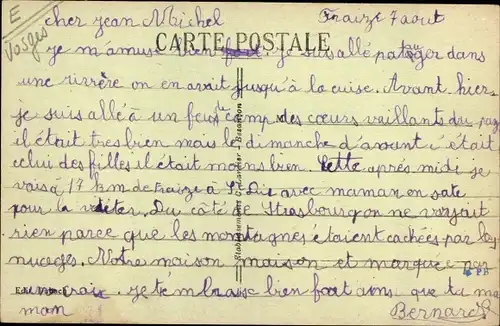 E
Vosges
Cher Jean Michel Fraize 7 aout
CARTE POSTALE
je m'amuse bien je suis allé patauger dans
une rivière on en avait jusqu'à la cuise. Avant hier
je suis allé à un feu de camp des cœurs vaillants du pays
il était tres bien mais le dimanche d'avant c'était
celui des filles il était moins bien. Cette après midi je
vais à 17 km de Fraize à St Dié avec maman en
pour la visiter. Du côté de Strasbourg on ne voyait
rien parce que les montagnes étaient cachées par les
nuages. Notre maison maison et marquée par
une croix. je t'embrasse bien fort ainsi que ta ma
man Bernard